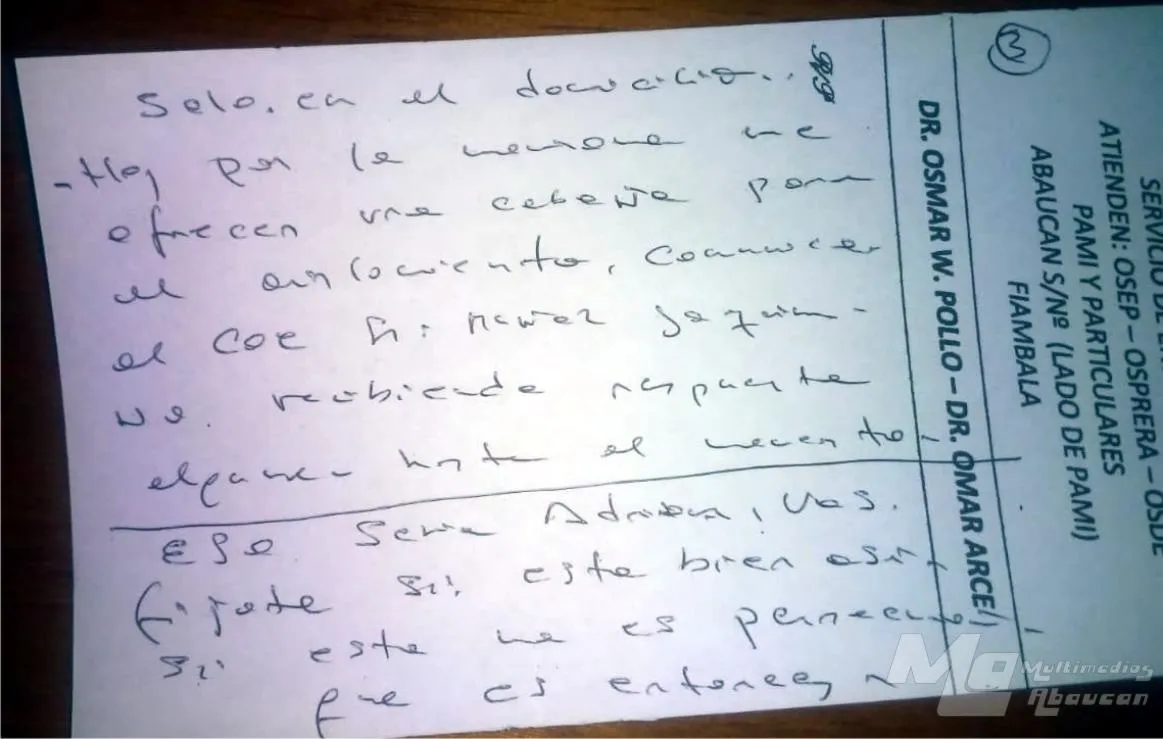 Solo. en el domicilio..
- Hoy por la mañana me
ofrecen una cabaña para
el aislamiento, comunicar
el COE
no. recibiendo respuesta
alguna hasta el momento,
ESO seria Adriana, Vos.
fijate si: esta bien asi,
si esto no es
que es entonces
SERVICIO DE
ATIENDEN: OSEP – OSPRERA – OSDE
PAMI Y PARTICULARES
ABAUCAN S/Nº (LADO DE PAMI)
FIAMBALA
DR. OSMAR W. POLLO – DR. OMAR ARCE
Mg Multimedios
Abaucan